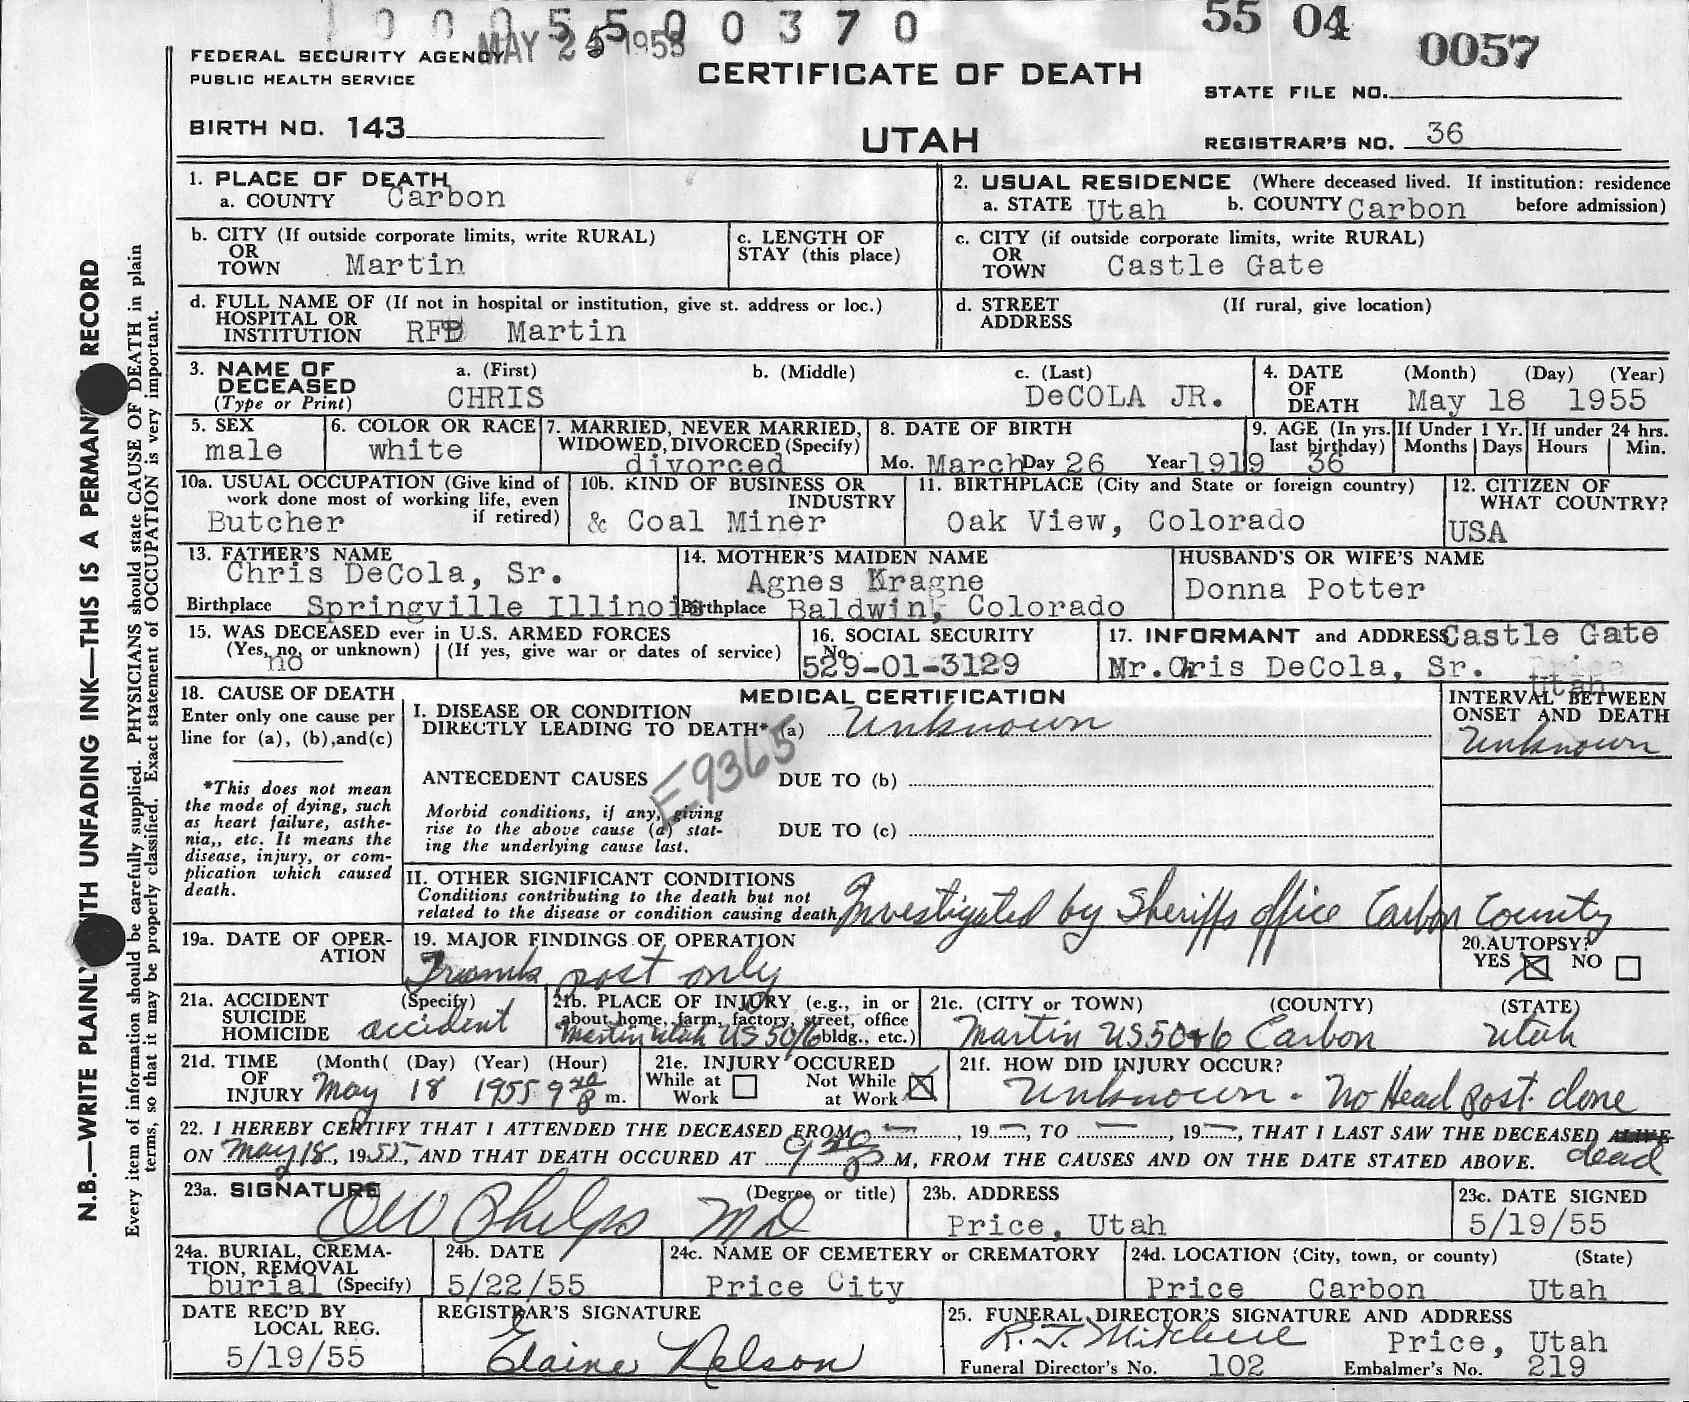 1 0 0 5 5 0 0 3 7 0
MAY 25 1955
55 04
0057
FEDERAL SECURITY AGENCY
PUBLIC HEALTH SERVICE
CERTIFICATE OF DEATH
STATE FILE NO.
BIRTH NO. 143
UTAH
REGISTRAR'S NO. 36
N.B.—WRITE PLAINLY WITH UNFADING INK—THIS IS A PERMANENT RECORD
Every item of information should be carefully supplied. PHYSICIANS should state CAUSE OF DEATH in plain
terms, so that it may be properly classified. Exact statement of OCCUPATION is very important.
1. PLACE OF DEATH
a. COUNTY Carbon
2. USUAL RESIDENCE (Where deceased lived. If institution: residence
a. STATE Utah b. COUNTY Carbon before admission)
b. CITY (If outside corporate limits, write RURAL)
OR
TOWN Martin
c. LENGTH OF
STAY (this place)
c. CITY (if outside corporate limits, write RURAL)
OR
TOWN Castle Gate
d. FULL NAME OF (If not in hospital or institution, give st. address or loc.)
HOSPITAL OR
INSTITUTION RFD Martin
d. STREET (If rural, give location)
ADDRESS
3. NAME OF a. (First) b. (Middle) c. (Last)
DECEASED
(Type or Print) CHRIS DeCOLA JR.
4. DATE (Month) (Day) (Year)
OF
DEATH May 18 1955
5. SEX
male
6. COLOR OR RACE
white
7. MARRIED, NEVER MARRIED,
WIDOWED, DIVORCED (Specify)
divorced
8. DATE OF BIRTH
Mo. March Day 26 Year 1919
9. AGE (In yrs.
last birthday)
36
If Under 1 Yr.
Months Days
If under 24 hrs.
Hours Min.
10a. USUAL OCCUPATION (Give kind of
work done most of working life, even
if retired)
Butcher
10b. KIND OF BUSINESS OR
INDUSTRY
& Coal Miner
11. BIRTHPLACE (City and State or foreign country)
Oak View, Colorado
12. CITIZEN OF
WHAT COUNTRY?
USA
13. FATHER'S NAME
Chris DeCola, Sr.
Birthplace Springville Illinois
14. MOTHER'S MAIDEN NAME
Agnes Kragne
Birthplace Baldwin, Colorado
HUSBAND'S OR WIFE'S NAME
Donna Potter
15. WAS DECEASED ever in U.S. ARMED FORCES
(Yes, no, or unknown) (If yes, give war or dates of service)
no
16. SOCIAL SECURITY
No.
529-01-3129
17. INFORMANT and ADDRESS Castle Gate
Mr. Chris DeCola, Sr. Price
Utah
18. CAUSE OF DEATH
Enter only one cause per
line for (a), (b), and (c)
*This does not mean
the mode of dying, such
as heart failure, asthe-
nia,, etc. It means the
disease, injury, or com-
plication which caused
death.
MEDICAL CERTIFICATION
I. DISEASE OR CONDITION
DIRECTLY LEADING TO DEATH* (a) Unknown
INTERVAL BETWEEN
ONSET AND DEATH
Unknown
E9365
ANTECEDENT CAUSES DUE TO (b)
Morbid conditions, if any, giving
rise to the above cause (a) stat-
ing the underlying cause last.
DUE TO (c)
II. OTHER SIGNIFICANT CONDITIONS
Conditions contributing to the death but not
related to the disease or condition causing death.
Investigated by Sheriffs office Carbon County
19a. DATE OF OPER-
ATION
19. MAJOR FINDINGS OF OPERATION
Trunk post only
20. AUTOPSY?
YES NO
21a. ACCIDENT (Specify)
SUICIDE
HOMICIDE accident
21b. PLACE OF INJURY (e.g., in or
about home, farm, factory, street, office
bldg., etc.)
Martin Utah US 50/6
21c. (CITY or TOWN) (COUNTY) (STATE)
Martin US 50+6 Carbon Utah
21d. TIME (Month( (Day) (Year) (Hour)
OF
INJURY May 18 1955 9 m.
21e. INJURY OCCURED
While at Not While
Work at Work
21f. HOW DID INJURY OCCUR?
Unknown - No Head post done
22. I HEREBY CERTIFY THAT I ATTENDED THE DECEASED FROM — , 19 — , TO — , 19 — , THAT I LAST SAW THE DECEASED ALIVE
ON May 18, 1955, AND THAT DEATH OCCURED AT 9 M, FROM THE CAUSES AND ON THE DATE STATED ABOVE. dead
23a. SIGNATURE (Degree or title)
OW Phelps MD
23b. ADDRESS
Price, Utah
23c. DATE SIGNED
5/19/55
24a. BURIAL, CREMA-
TION, REMOVAL
burial (Specify)
24b. DATE
5/22/55
24c. NAME OF CEMETERY or CREMATORY
Price City
24d. LOCATION (City, town, or county) (State)
Price Carbon Utah
DATE REC'D BY
LOCAL REG.
5/19/55
REGISTRAR'S SIGNATURE
Elaine Nelson
25. FUNERAL DIRECTOR'S SIGNATURE AND ADDRESS
R. J. Mitchell Price, Utah
Funeral Director's No. 102 Embalmer's No. 219